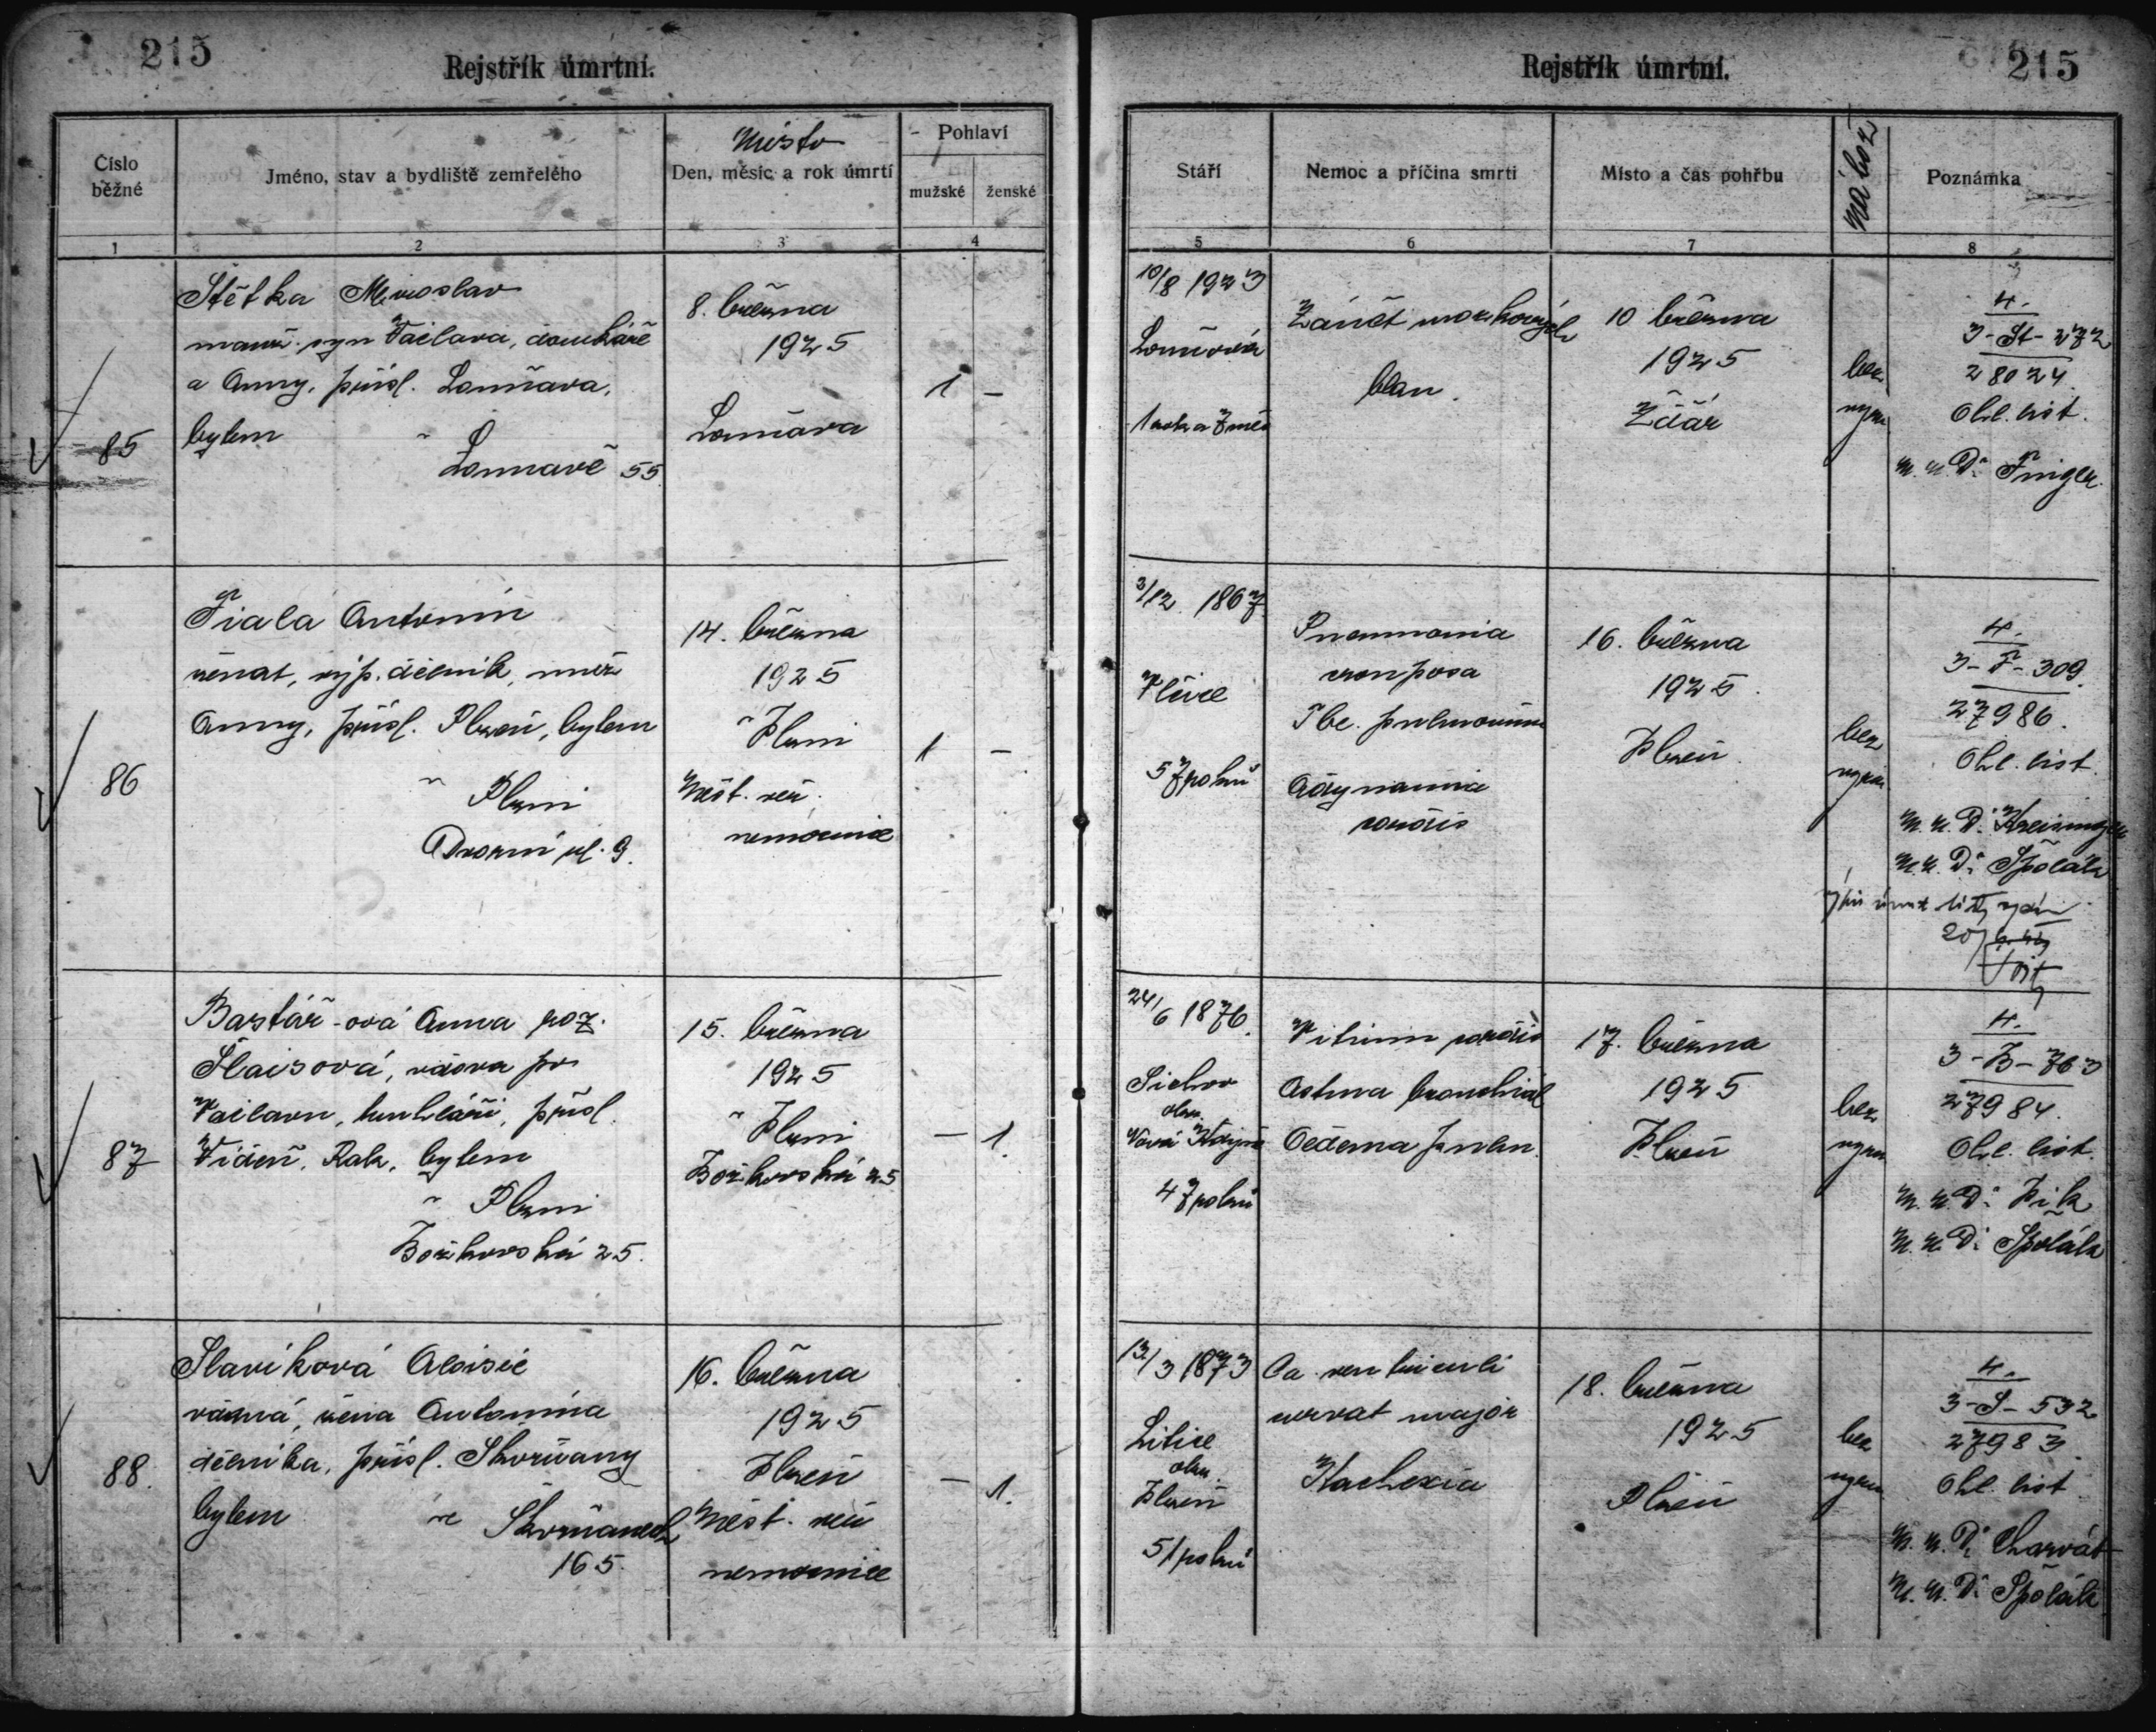 215
Rejstřík úmrtní.
Číslo běžné
Jméno, stav a bydliště zemřelého
Místo
Den, měsíc a rok úmrtí
Pohlaví
mužské ženské
1 2 3 4
Štětka Miroslav
manž. syn Václava, domkáře
a Anny, přísl.
bylem
55
85
8. března
1925
1 –
Fiala Antonín
ženat, výp. dělník, muž
Anny, přísl. Plzeň, bylem
v Plzni
Dvorní ul. 9.
86
14. března
1925
v Plzni
Měst. veř.
nemocnice
1 –
Bastář-ová Anna roz.
Šlaisová, vdova po
Václavu, truhláři, přísl.
Vídeň, Rak, bylem
v Plzni
Božkovská 25.
87
15. března
1925
v Plzni
Božkovská 25
– 1.
Slavíková Aloisie
vdaná, žena Antonína
dělníka, přísl. Skvrňany
bylem ve Skvrňanech
165.
88.
16. března
1925
Plzeň
Měst. veř.
nemocnice
– 1.
215
Rejstřík úmrtní.
Stáří
Nemoc a příčina smrti
Místo a čas pohřbu
Nábož
Poznámka
5 6 7 8
10/8 1923
1 rok a 7 měs
Zánět mozkových
blan.
10 března
1925
Žďár
bez
vyzn
4.
3-St-272
28024.
Ohl. list.
M. u. Dr
3/12. 1867
57 roků
Pneumonia
crouposa
Tbc. pulmonum
Adynamia
cordis
16. března
1925.
Plzeň.
bez
vyzn.
4.
3-F-309.
27986.
Ohl. list.
M. u. Dr
M. u. Dr Špolák
24/6 1876.
Nová
47 roků
Vitium cordis
Astma bronchial
Oedema pulm.
17. března
1925
Plzeň
bez
vyzn
4.
3-B-763
27984.
Ohl. list.
M. u. Dr Pik
M. u. Dr Špolák
13/3 1873
Litice
okr.
Plzeň
51 roků
Ca. ventriculi
curvat major
Kachexia
18. března
1925
Plzeň
bez
vyzn
4.
3-S-532
27983.
Ohl. list
M. u. Dr Charvát
M. u. Dr Špolák